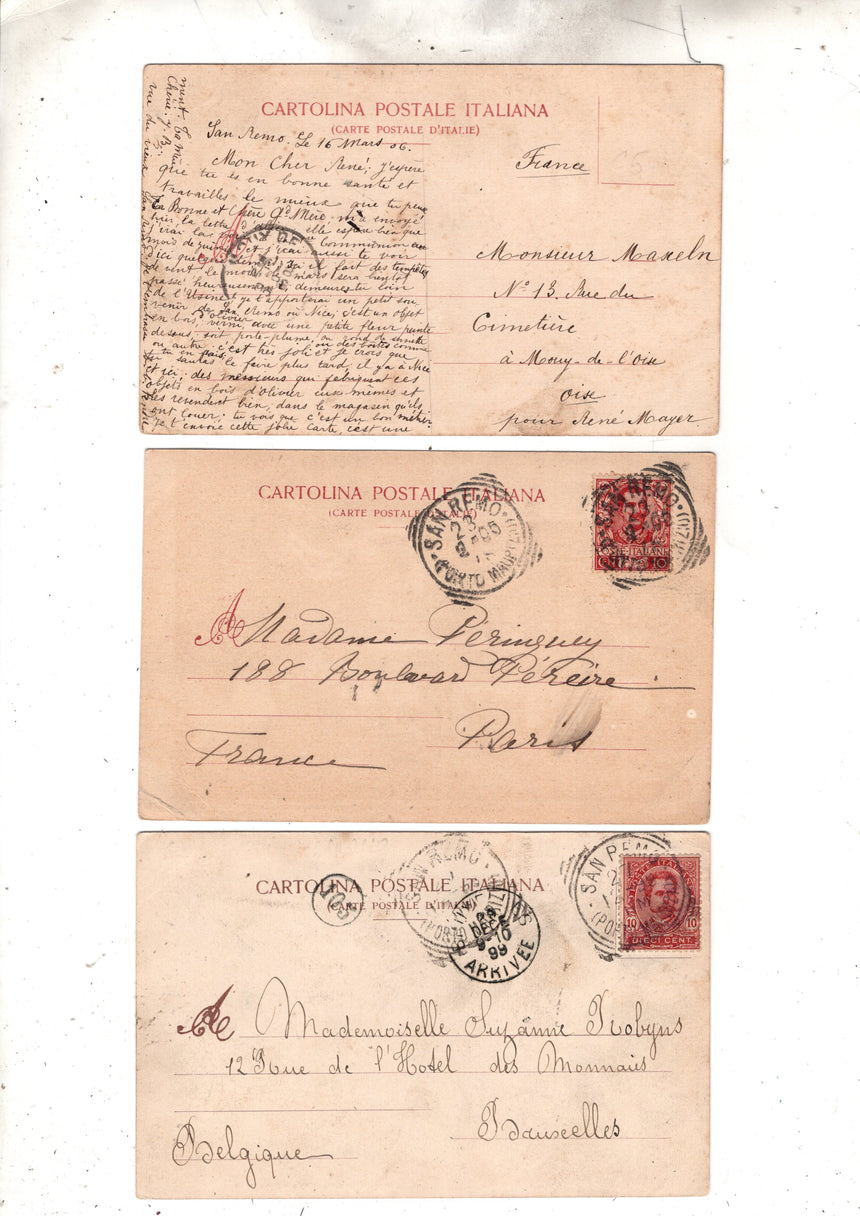 CARTOLINA POSTALE ITALIANA
(CARTE POSTALE D'ITALIE)
San Remo. Le 16 Mars 06.
Mon Cher René, j'espère
que tu es en bonne santé et
travailles le mieux que tu peux
La Bonne et Chère Gd Mère m'a envoyé
hier la lettre elle espère bien que
j'irai Communion au
mois de et j'irai aussi te voir
d'ici il fait des tempêtes
le mois de mars sera bientôt
passé heureusement, demeurez loin
de et je t'apporterai un petit sou
venir de San Remo ou Nice, c'est un objet
en bois d'olivier verni, avec une petite fleur peinte
dessus. soit porte-plume, ou rond de serviette
ou autre. c'est très joli et je crois que
tu sauras le faire plus tard, il y a à Nice
et ici des messieurs qui fabriquent ces
objets en bois d'Olivier eux-mêmes et
les revendent bien, dans le magasin qu'ils
ont louer. tu vois que c'est un bon métier.
je t'envoie cette jolie carte, c'est une
vue du vieux San Remo
France
Monsieur Maxeln
No 13. Rue du
Cimetière
à Mouy-de-l'Oise
Oise
pour René Mayer.
CARTOLINA POSTALE ITALIANA
(CARTE POSTALE D'ITALIE)
SAN REMO
23
05
(PORTO MAURIZIO)
SAN REMO
POSTE ITALIANE
10
A Madame Péringuey
188 Boulevard Péreire.
Paris
France
CARTOLINA POSTALE ITALIANA
(CARTE POSTALE D'ITALIE)
SAN REMO
(PORTO MAURIZIO)
DECE
9-10
99
ARRIVÉE
SAN REMO
10 10
DIECI CENT.
A Mademoiselle Suzanne Robyns
12 Rue de l'Hotel des Monnais
Bruxelles
Belgique